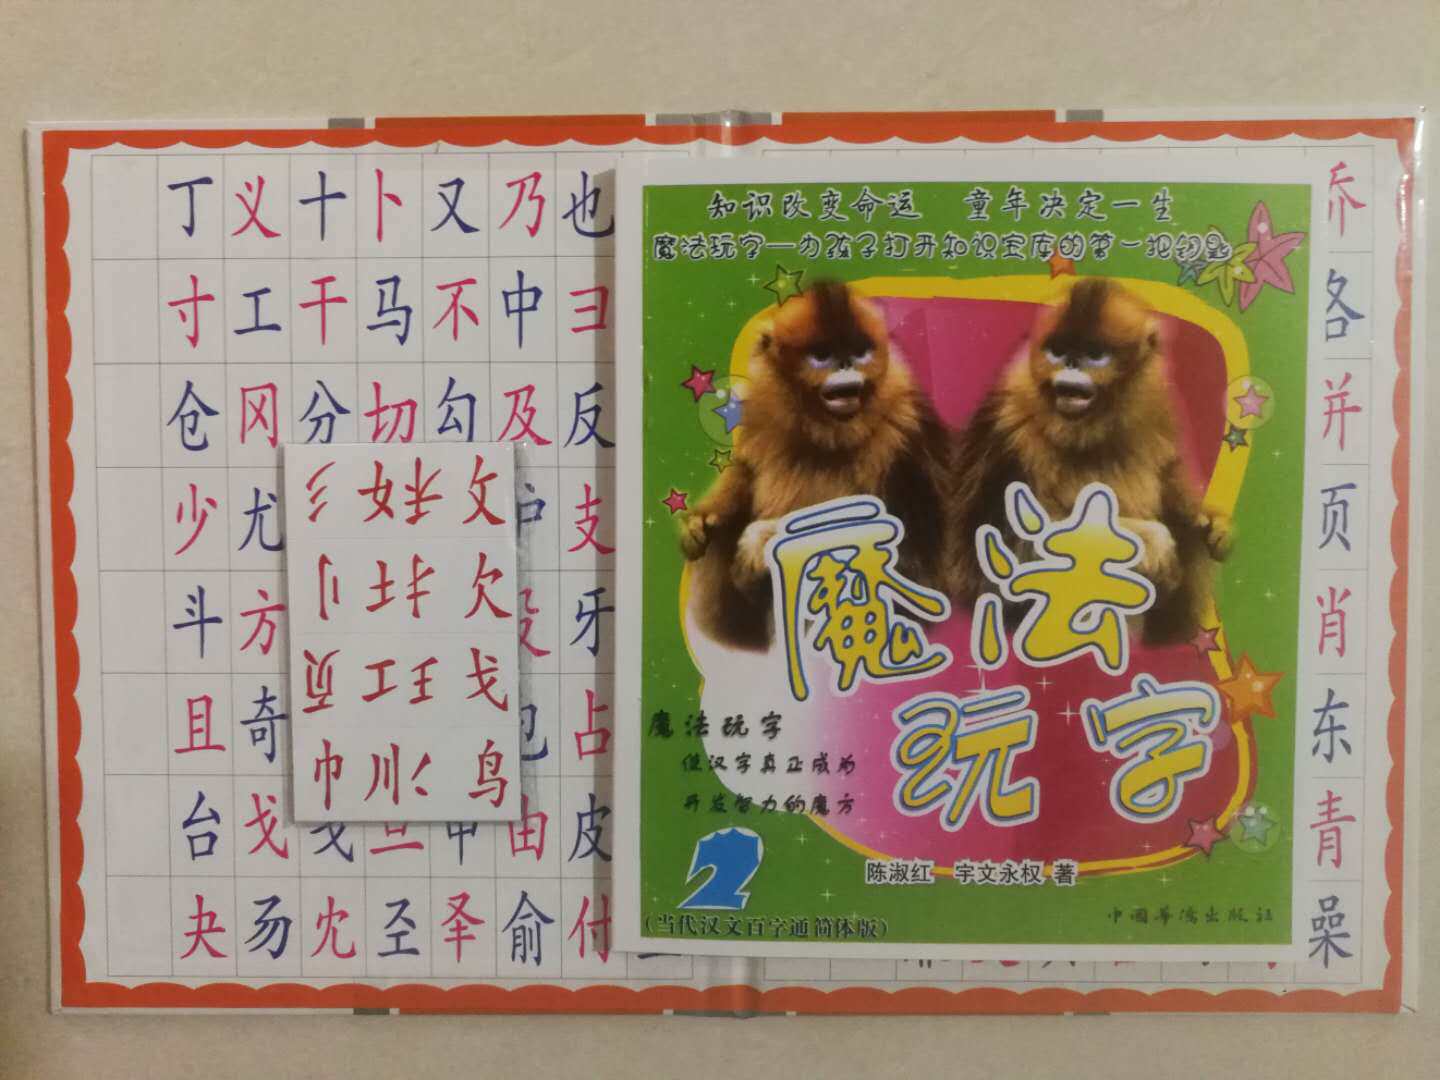 丁义十卜又乃也
寸工干马不中彐
仓冈分切勾及反
少尤支
斗方牙
且奇占
台戈由皮
夬昜冘圣泽俞付
彡女禾文
刂土扌欠
页工王戈
巾川冫鸟
知识改变命运 童年决定一生
魔法玩字—为孩子打开知识宝库的第一把钥匙
魔法
玩字
魔法玩字
使汉字真正成为
开发智力的魔方
2
陈淑红 宇文永权 著
中国华侨出版社
(当代汉文百字通简体版)
乔
各
并
页
肖
东
青
喿